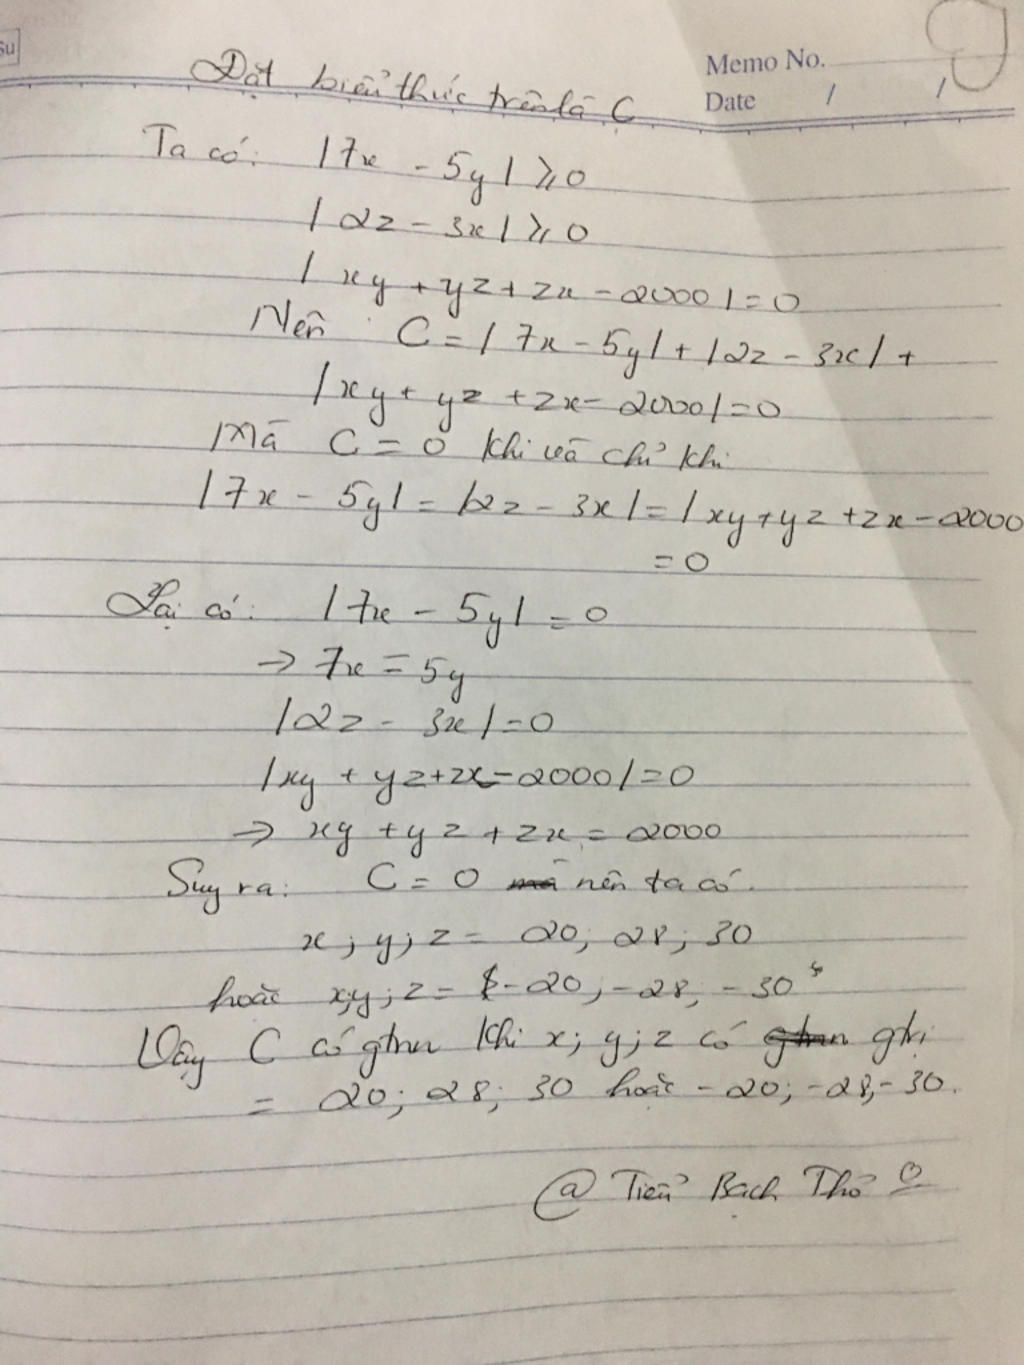 su
Memo No.
Date / /
Đặt biểu thức trên là C
Ta có: |7x - 5y| ⩾ 0
|2z - 3x| ⩾ 0
|xy + yz + zx - 2000| = 0
Nên C = |7x - 5y| + |2z - 3x| +
|xy + yz + zx - 2000| = 0
Mà C = 0 khi và chỉ khi
|7x - 5y| = |2z - 3x| = |xy + yz + zx - 2000
= 0
Lại có: |7x - 5y| = 0
→ 7x = 5y
|2z - 3x| = 0
|xy + yz + zx - 2000| = 0
→ xy + yz + zx = 2000
Suy ra: C = 0 nên ta có.
x; y; z = 20; 28; 30
hoặc x;y;z = -20, -28, -30
Vậy C có gtnn khi x; y; z có gtrị
= 20; 28; 30 hoặc -20; -28, -30.
@ Tiểu Bạch Thỏ